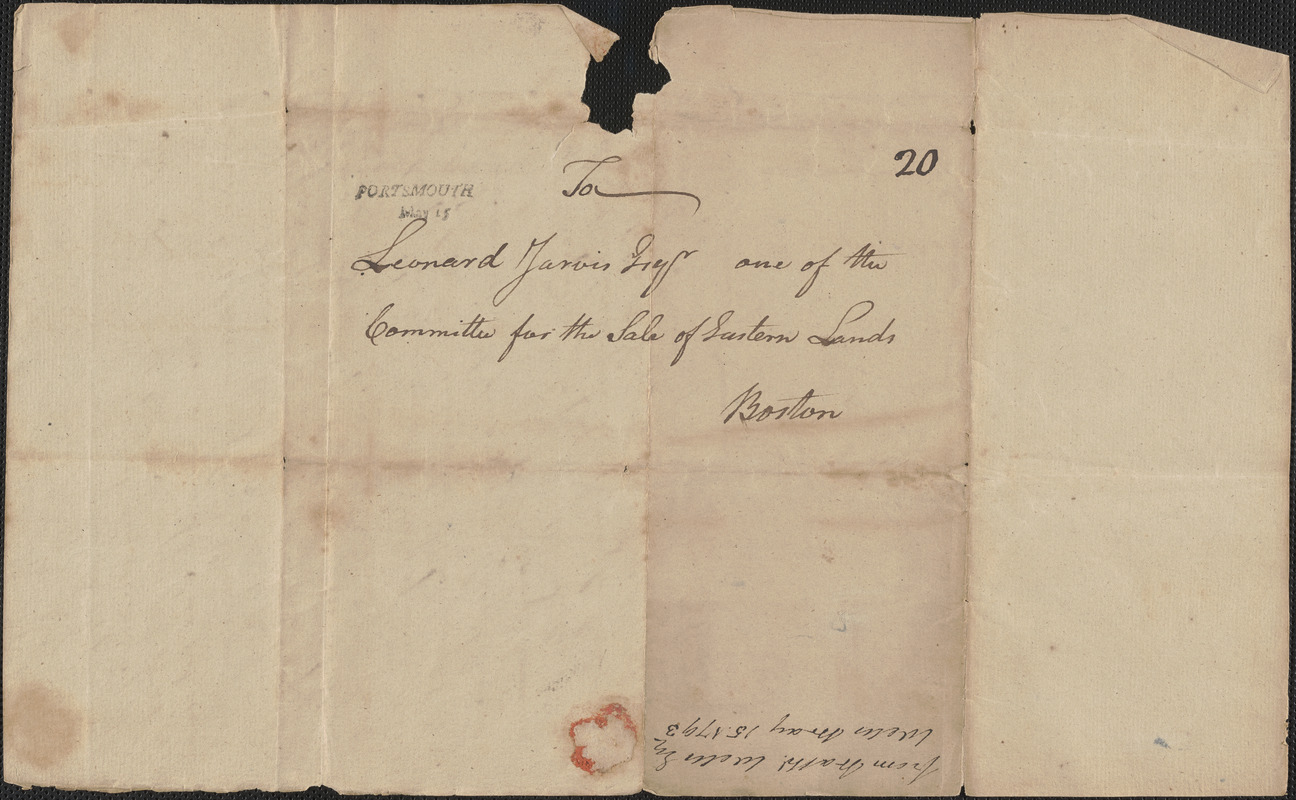 20
PORTSMOUTH
May 15
To
Leonard Jarvis Esqr one of the
Committee for the Sale of Eastern Lands
Boston
from Nathl. Wells Esq
Wells May 15. 1793